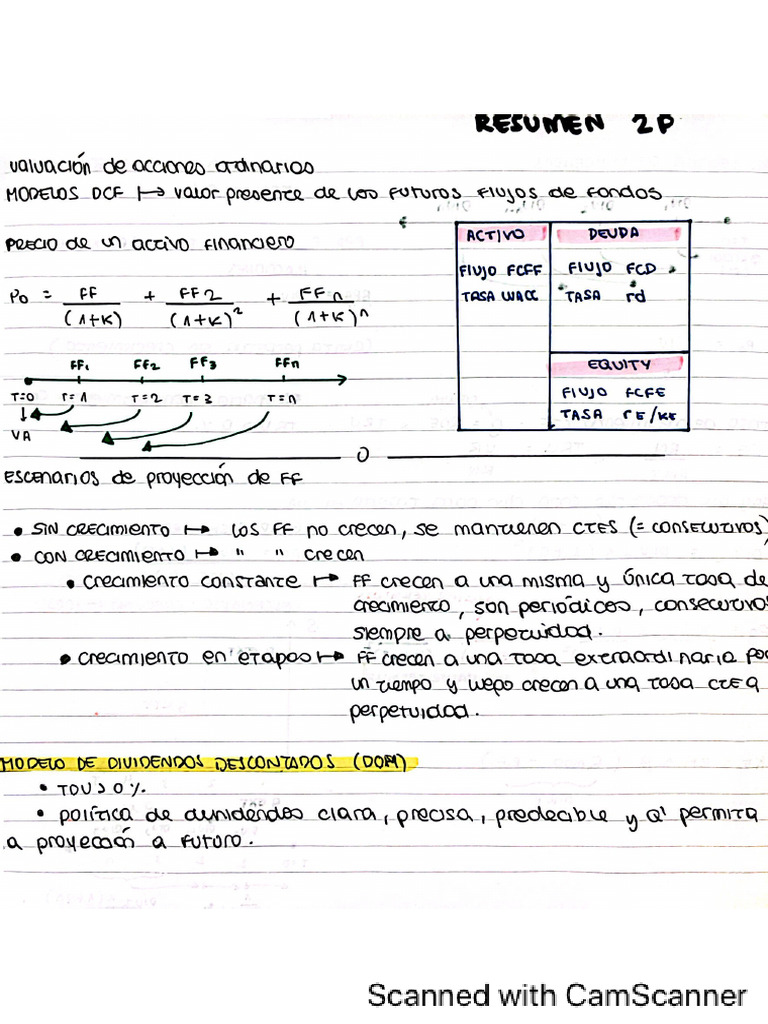 RESUMEN 2P
valuación de acciones ordinarias
MODELOS DCF ↦ valor presente de los futuros flujos de fondos
PRECIO de un activo financiero
P0 = FF/(1+K) + FF2/(1+K)^2 + FFn/(1+K)^n
ACTIVO
FLUJO FCFF
TASA WACC
DEUDA
FLUJO FCD
TASA rd
EQUITY
FLUJO FCFE
TASA rE/KE
FF1 FF2 FF3 FFn
T=0 T=1 T=2 T=3 T=n
VA
ESCENARIOS de proyección de FF
• SIN CRECIMIENTO ↦ LOS FF no crecen, se mantienen CTES (= CONSECUTIVOS)
• CON CRECIMIENTO ↦ " " crecen
• crecimiento constante ↦ FF crecen a una misma y única tasa de
crecimiento, son periódicos, consecutivos
siempre a perpetuidad.
• crecimiento en etapas ↦ FF crecen a una tasa extraordinaria por
un tiempo y luego crecen a una tasa CTE a
perpetuidad.
MODELO DE DIVIDENDOS DESCONTADOS (DDM)
• política de dividendos clara, precisa, predecible y q' permita
a proyección a futuro.
Scanned with CamScanner